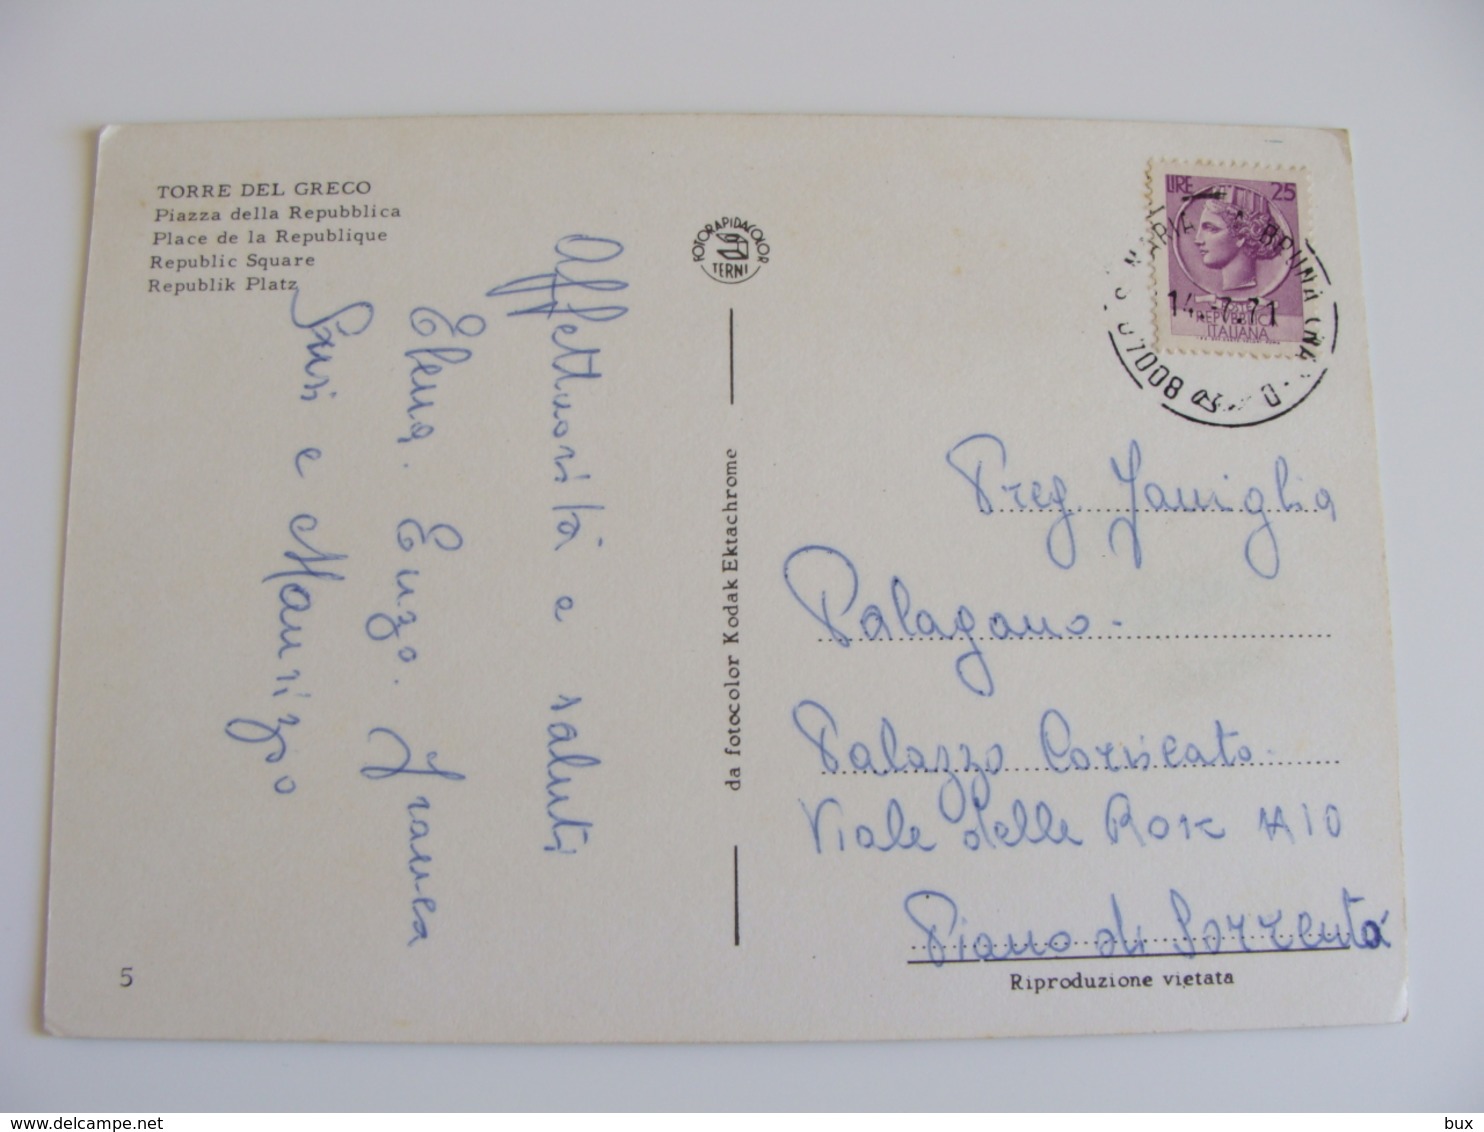 TORRE DEL GRECO
Piazza della Repubblica
Place de la Republique
Republic Square
Republik Platz
Affettuosità e saluti
Elena. Enzo. Franca
Susi e Maurizzo
5
FOTORAPIDACOLOR
TERNI
da fotocolor Kodak Ektachrome
LIRE 25
REPUBBLICA
ITALIANA
S. MARIA LA BRUNA (NA)
14.-7.71
Preg. Famiglia
Palagano.
Palazzo Corsicato.
Viale delle Rose N 10
Piano di Sorrento
Riproduzione vietata
bux